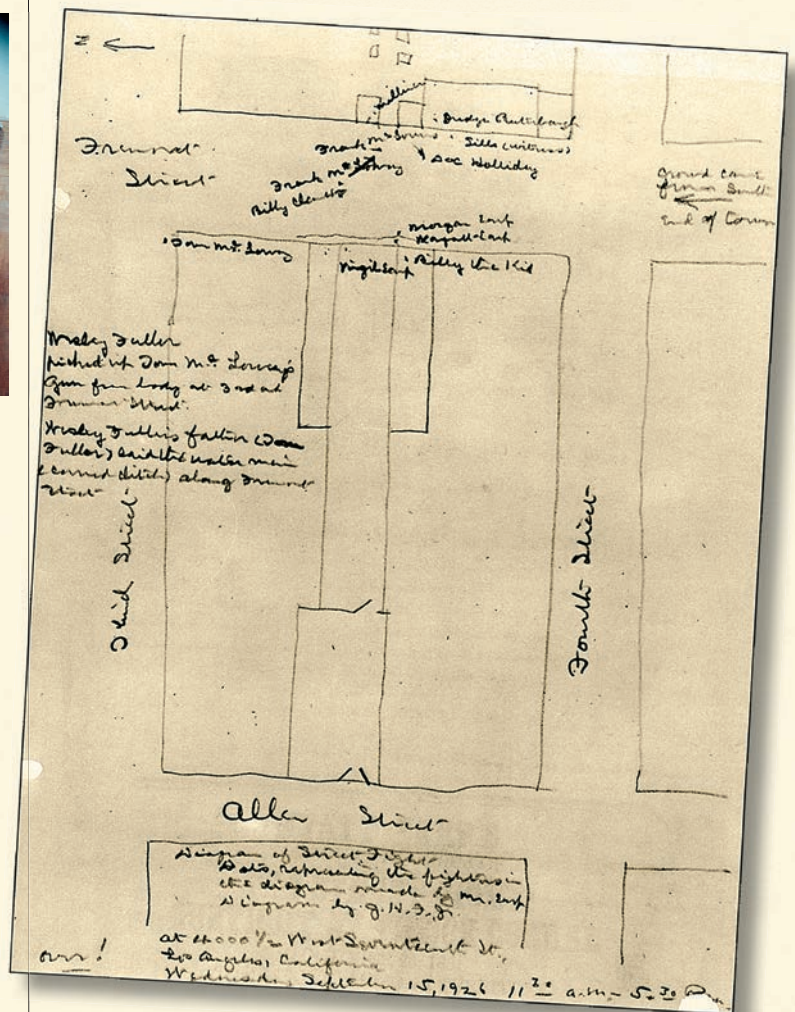 N
Fremont
Street
Judge
Sills (witness)
Doc Holliday
Frank McLowry
Billy
ground came
from South
End of Town
Morgan Earp
Virgil Earp
Billy the Kid
Tom McLowry
Wesley Fuller
picked up Tom McLowry's
Gun from body at 3rd and
Fremont Street.
Wesley Fuller's father (
Fuller) laid the water main
( ditch) along Fremont
Street
Third Street
Fourth Street
Allen Street
Diagram of Street Fight
Dots, representing the fighters in
the diagram made by Mr. Earp
Diagram by J.H.F. Jr.
at 4000 1/2 West Seventeenth St.,
Los Angeles, California
Wednesday September 15, 1926 11 30 a.m. - 5.30 P.m.
over!